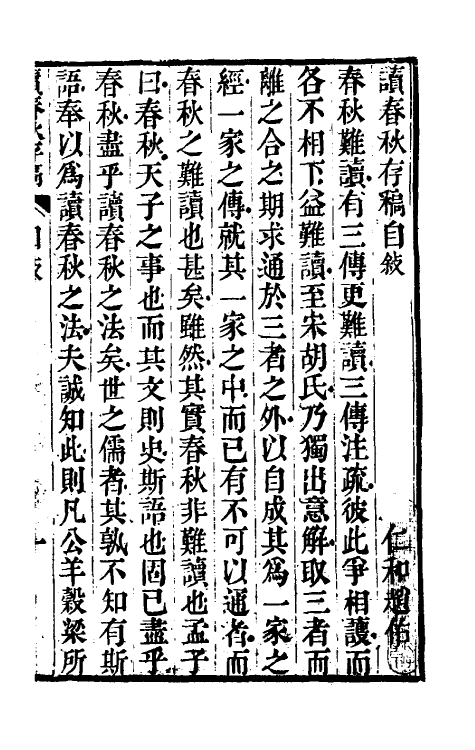 讀春秋存稿自敘
仁和趙佑
春秋難讀有三傳更難讀三傳注疏彼此爭相護而
各不相下益難讀至宋胡氏乃獨出意解取三者而
離之合之期求通於三者之外以自成其爲一家之
經一家之傳就其一家之中而已有不可以通者而
春秋之難讀也甚矣雖然其實春秋非難讀也孟子
曰春秋天子之事也而其文則史斯語也固已盡乎
春秋盡乎讀春秋之法矣世之儒者其孰不知有斯
語奉以爲讀春秋之法夫誠知此則凡公羊穀梁所
讀春秋存稿
自敘
一